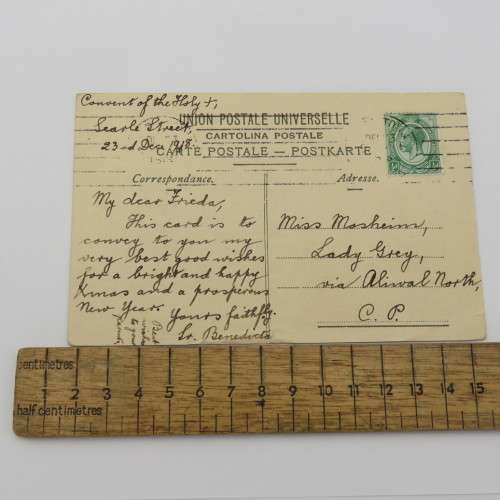 Convent of the Holy +,
Searle Street,
23rd Dec 1918.
UNION POSTALE UNIVERSELLE
CARTOLINA POSTALE
CARTE POSTALE — POSTKARTE
Correspondance.
Adresse.
My dear Frieda,
This card is to
convey to you my
very best good wishes
for a bright and happy
Xmas and a prosperous
New Year.
Yours faithfly.
Sr. Benedicta
Miss Mosheim,
Lady Grey,
via Aliwal North,
C. P.
centimetres
1 2 3 4 5 6 7 8 9 10 11 12 13 14 15
half centimetres